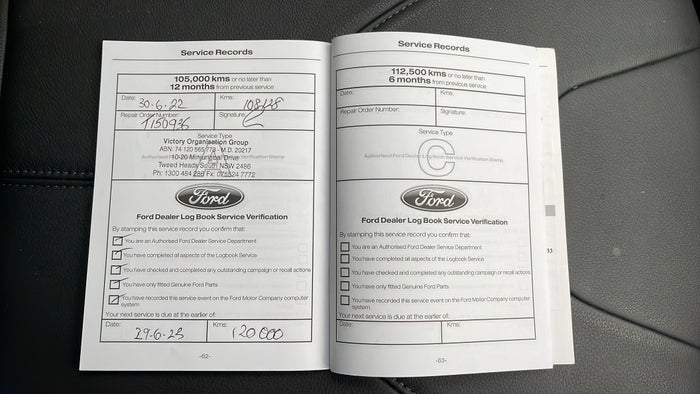 Service Records
105,000 kms or no later than
12 months from previous service
Date: 30.6.22 Kms:
Repair Order Number: 1150936 Signature:
Service Type
Victory Organisation Group
ABN: 74 120 665 778 - M.D. 20217
10-20 Minjungbal Drive
Tweed Heads South NSW 2486
Ph: 1300 484 299 Fx: 075524 7772
Ford
Ford Dealer Log Book Service Verification
By stamping this service record you confirm that:
You are an Authorised Ford Dealer Service Department
You have completed all aspects of the Logbook Service
You have checked and completed any outstanding campaign or recall actions
You have only fitted Genuine Ford Parts
You have recorded this service event on the Ford Motor Company computer
system
Your next service is due at the earlier of:
Date: 29-6-23 Kms: 120 000
-62-
Service Records
112,500 kms or no later than
6 months from previous service
Date: Kms:
Repair Order Number: Signature:
Service Type
C
Authorised Ford Dealer Log Book Service Verification Stamp
Ford
Ford Dealer Log Book Service Verification
By stamping this service record you confirm that:
You are an Authorised Ford Dealer Service Department
You have completed all aspects of the Logbook Service
You have checked and completed any outstanding campaign or recall actions
You have only fitted Genuine Ford Parts
You have recorded this service event on the Ford Motor Company computer
system
Your next service is due at the earlier of:
Date: Kms:
-63-
53